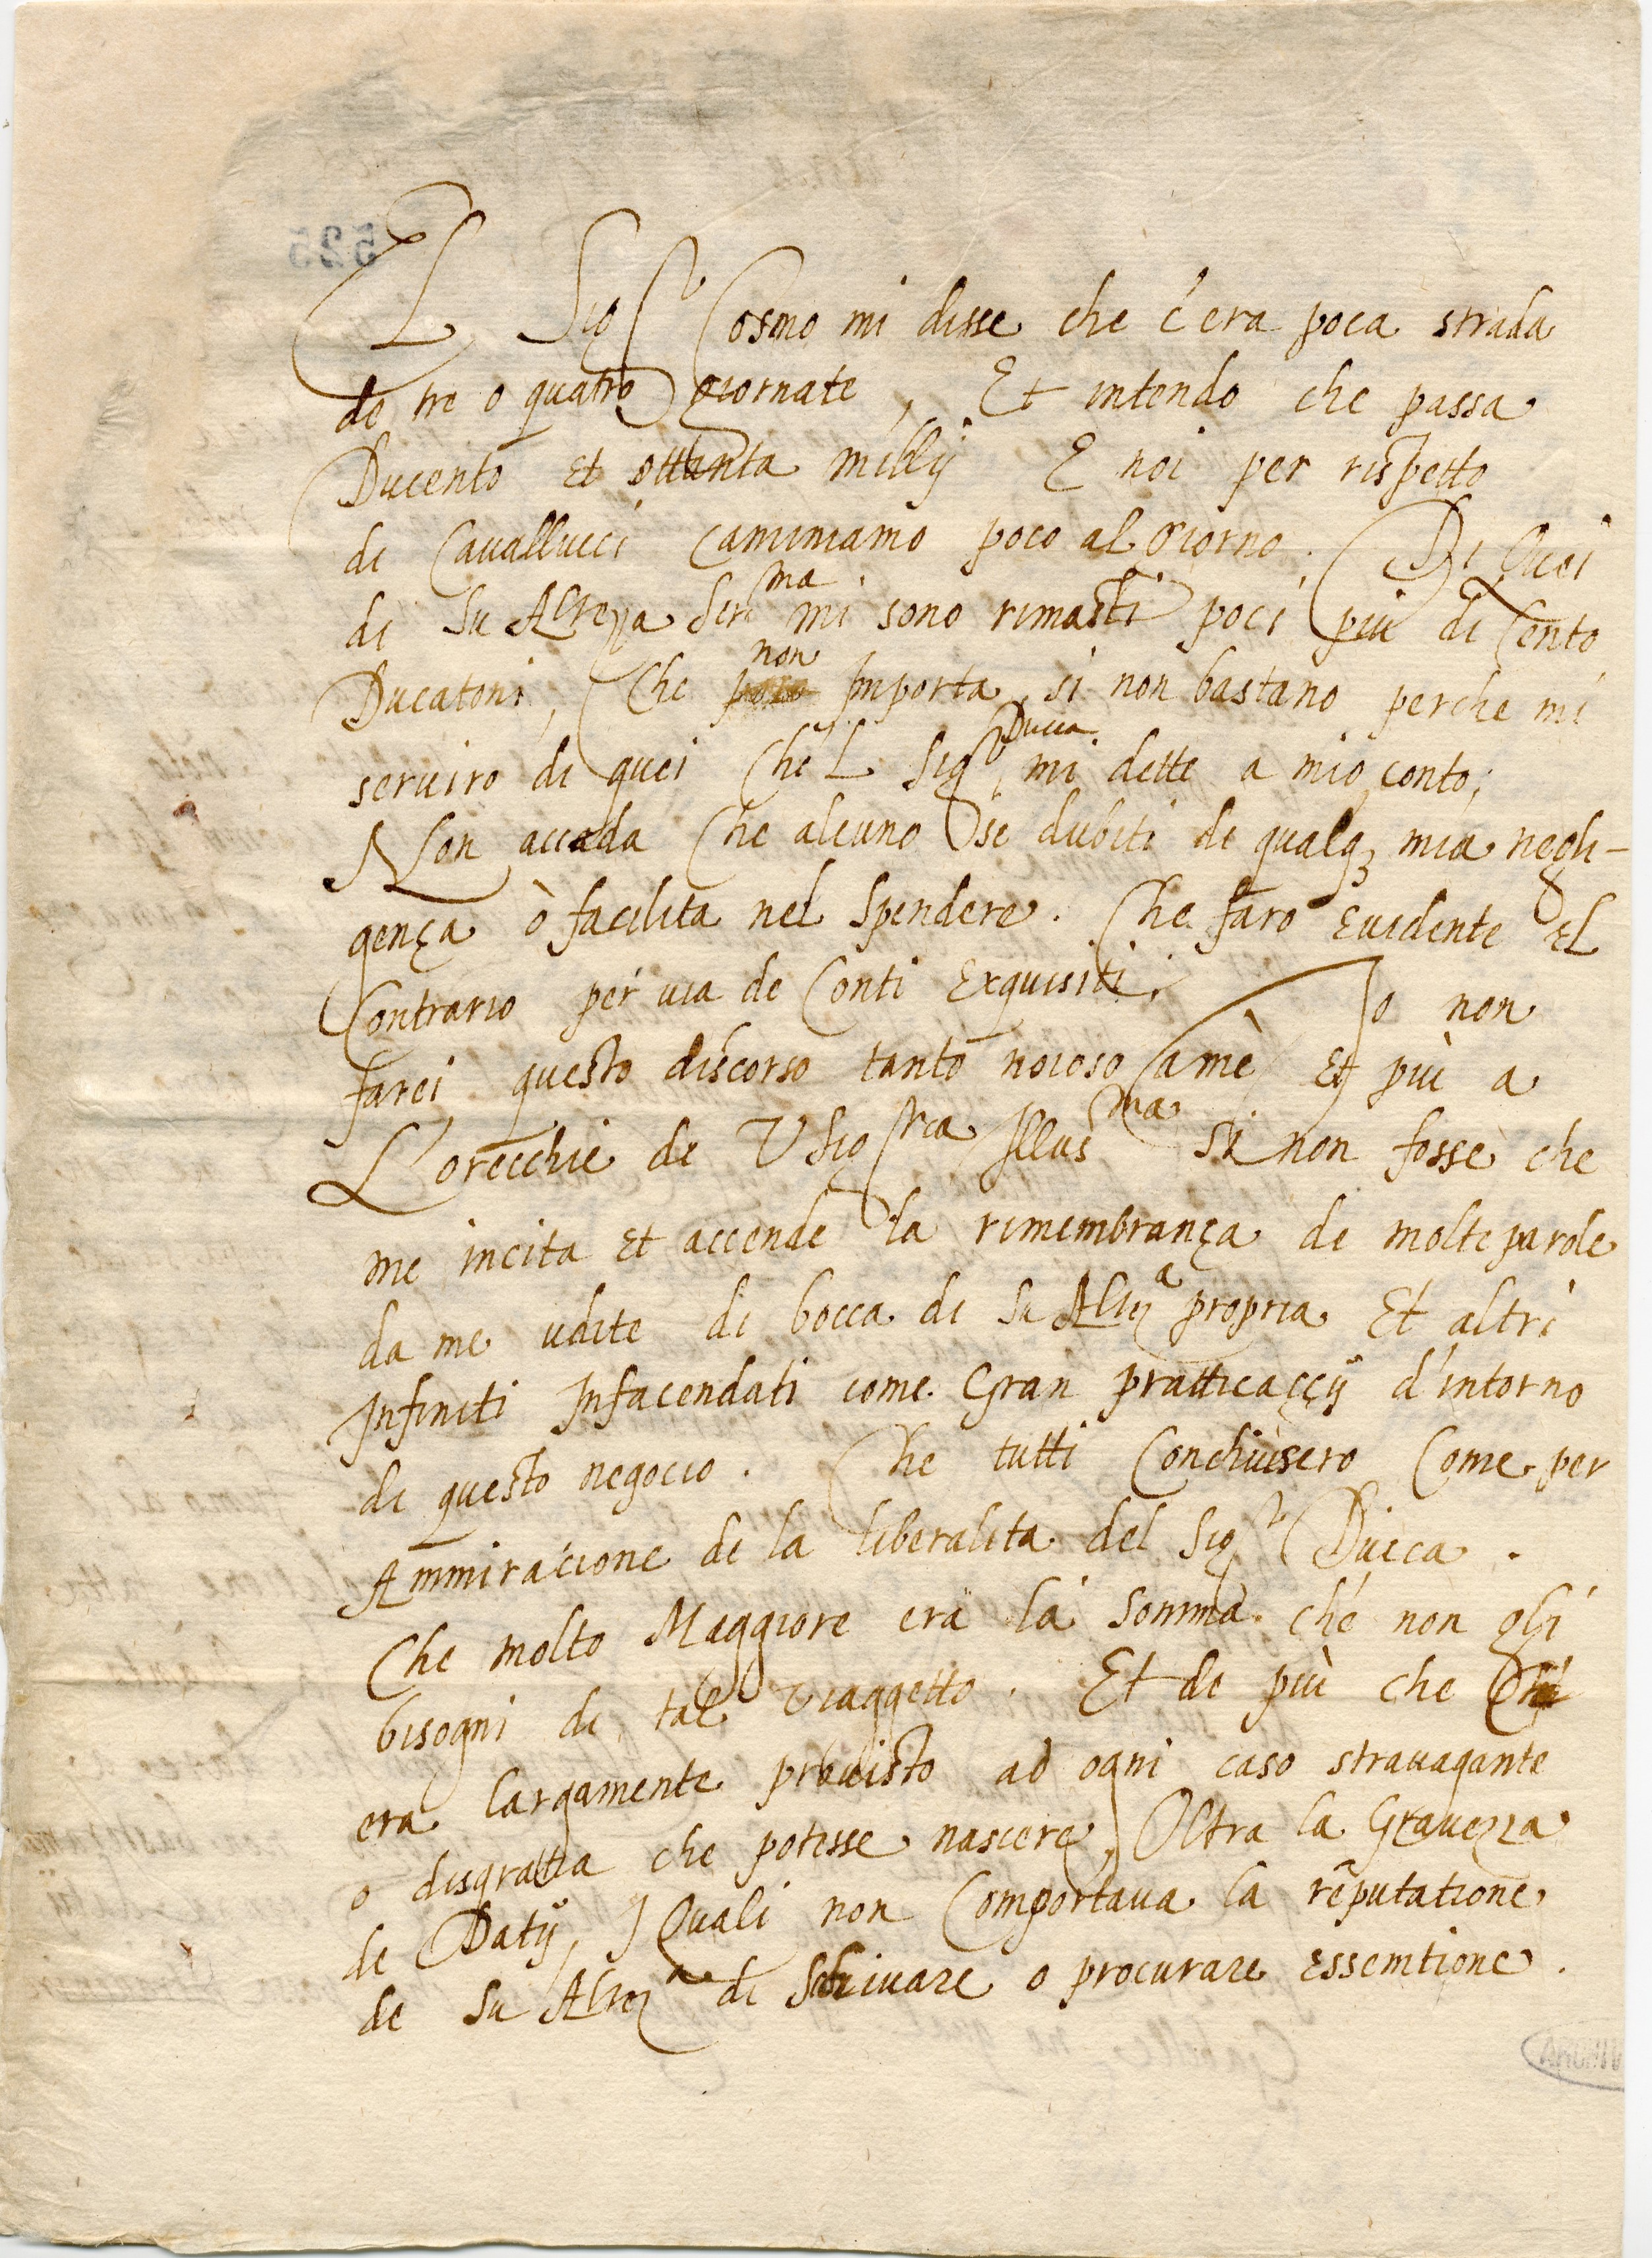 El Sigr Cosmo mi disse che c'era poca strada
de tre o quatro Giornate, Et intendo che passa
Ducento et ottanta milij E noi per rispetto
di Cavallucci Caminiamo poco al Giorno. Di Quei
di Su Altezza Serma mi sono rimasti poci più di Cento
Ducatoni, Che non Importa si non bastano perche mi
serviro di quei che L Sigr Ducca mi dette a mio conto,
Non accada Che alcuno se dubiti di qualq3 mia negli-
gença ò facilita nel Spendere. Che faro Evidente El
Contrario per via de Conti Exquisiti. Io non
farei questo discorso tanto noioso a mè Et più a
L'orecchie de V Sigria Illusma Si non fosse che
me incita et accende la rimembrança de molte parole
da me udite di bocca di Su Altza propria Et altri
Infiniti Infacendati come Gran pratticaççij d'intorno
di questo negocio. Che tutti Conchiusero Come per
Ammiracione de la liberalita del Sigr Ducca.
Che molto Maggiore era la somma che non gli
bisogni di tal viaggetto. Et de più che
era largamente provisto ad ogni caso stravagante
o disgratia che potesse nascere, Oltra la Gravezza
de Datij, I Quali non Comportava la reputatione
de Su Alteza di Schivare o procurare essemtione.
525